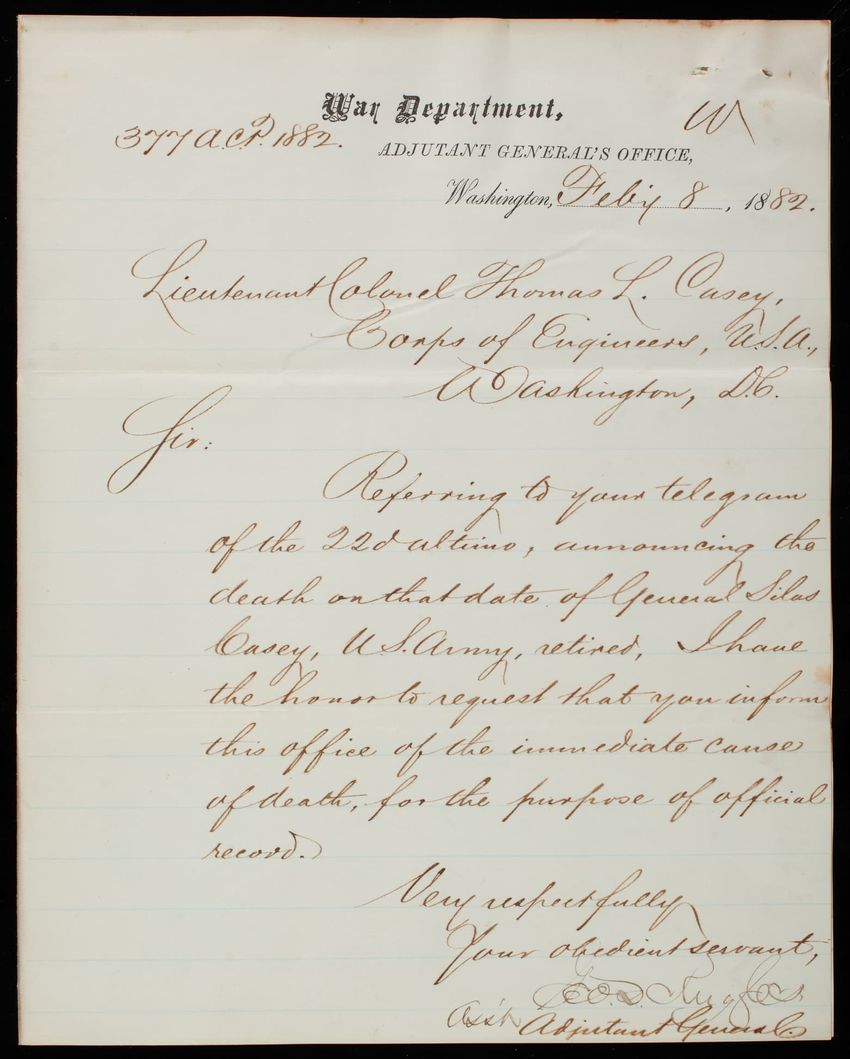 War Department,
377 A.C.P. 1882.
ADJUTANT GENERAL'S OFFICE,
Washington, Feb'y 8, 1882.
Lieutenant Colonel Thomas L. Casey,
Corps of Engineers, U.S.A.,
Washington, D.C.
Sir:
Referring to your telegram
of the 22d ultimo, announcing the
death on that date of General Silas
Casey, U.S. Army, retired, I have
the honor to request that you inform
this office of the immediate cause
of death, for the purpose of official
record.
Very respectfully
Your obedient servant,
Geo. D. Ruggles
Ass't Adjutant General.